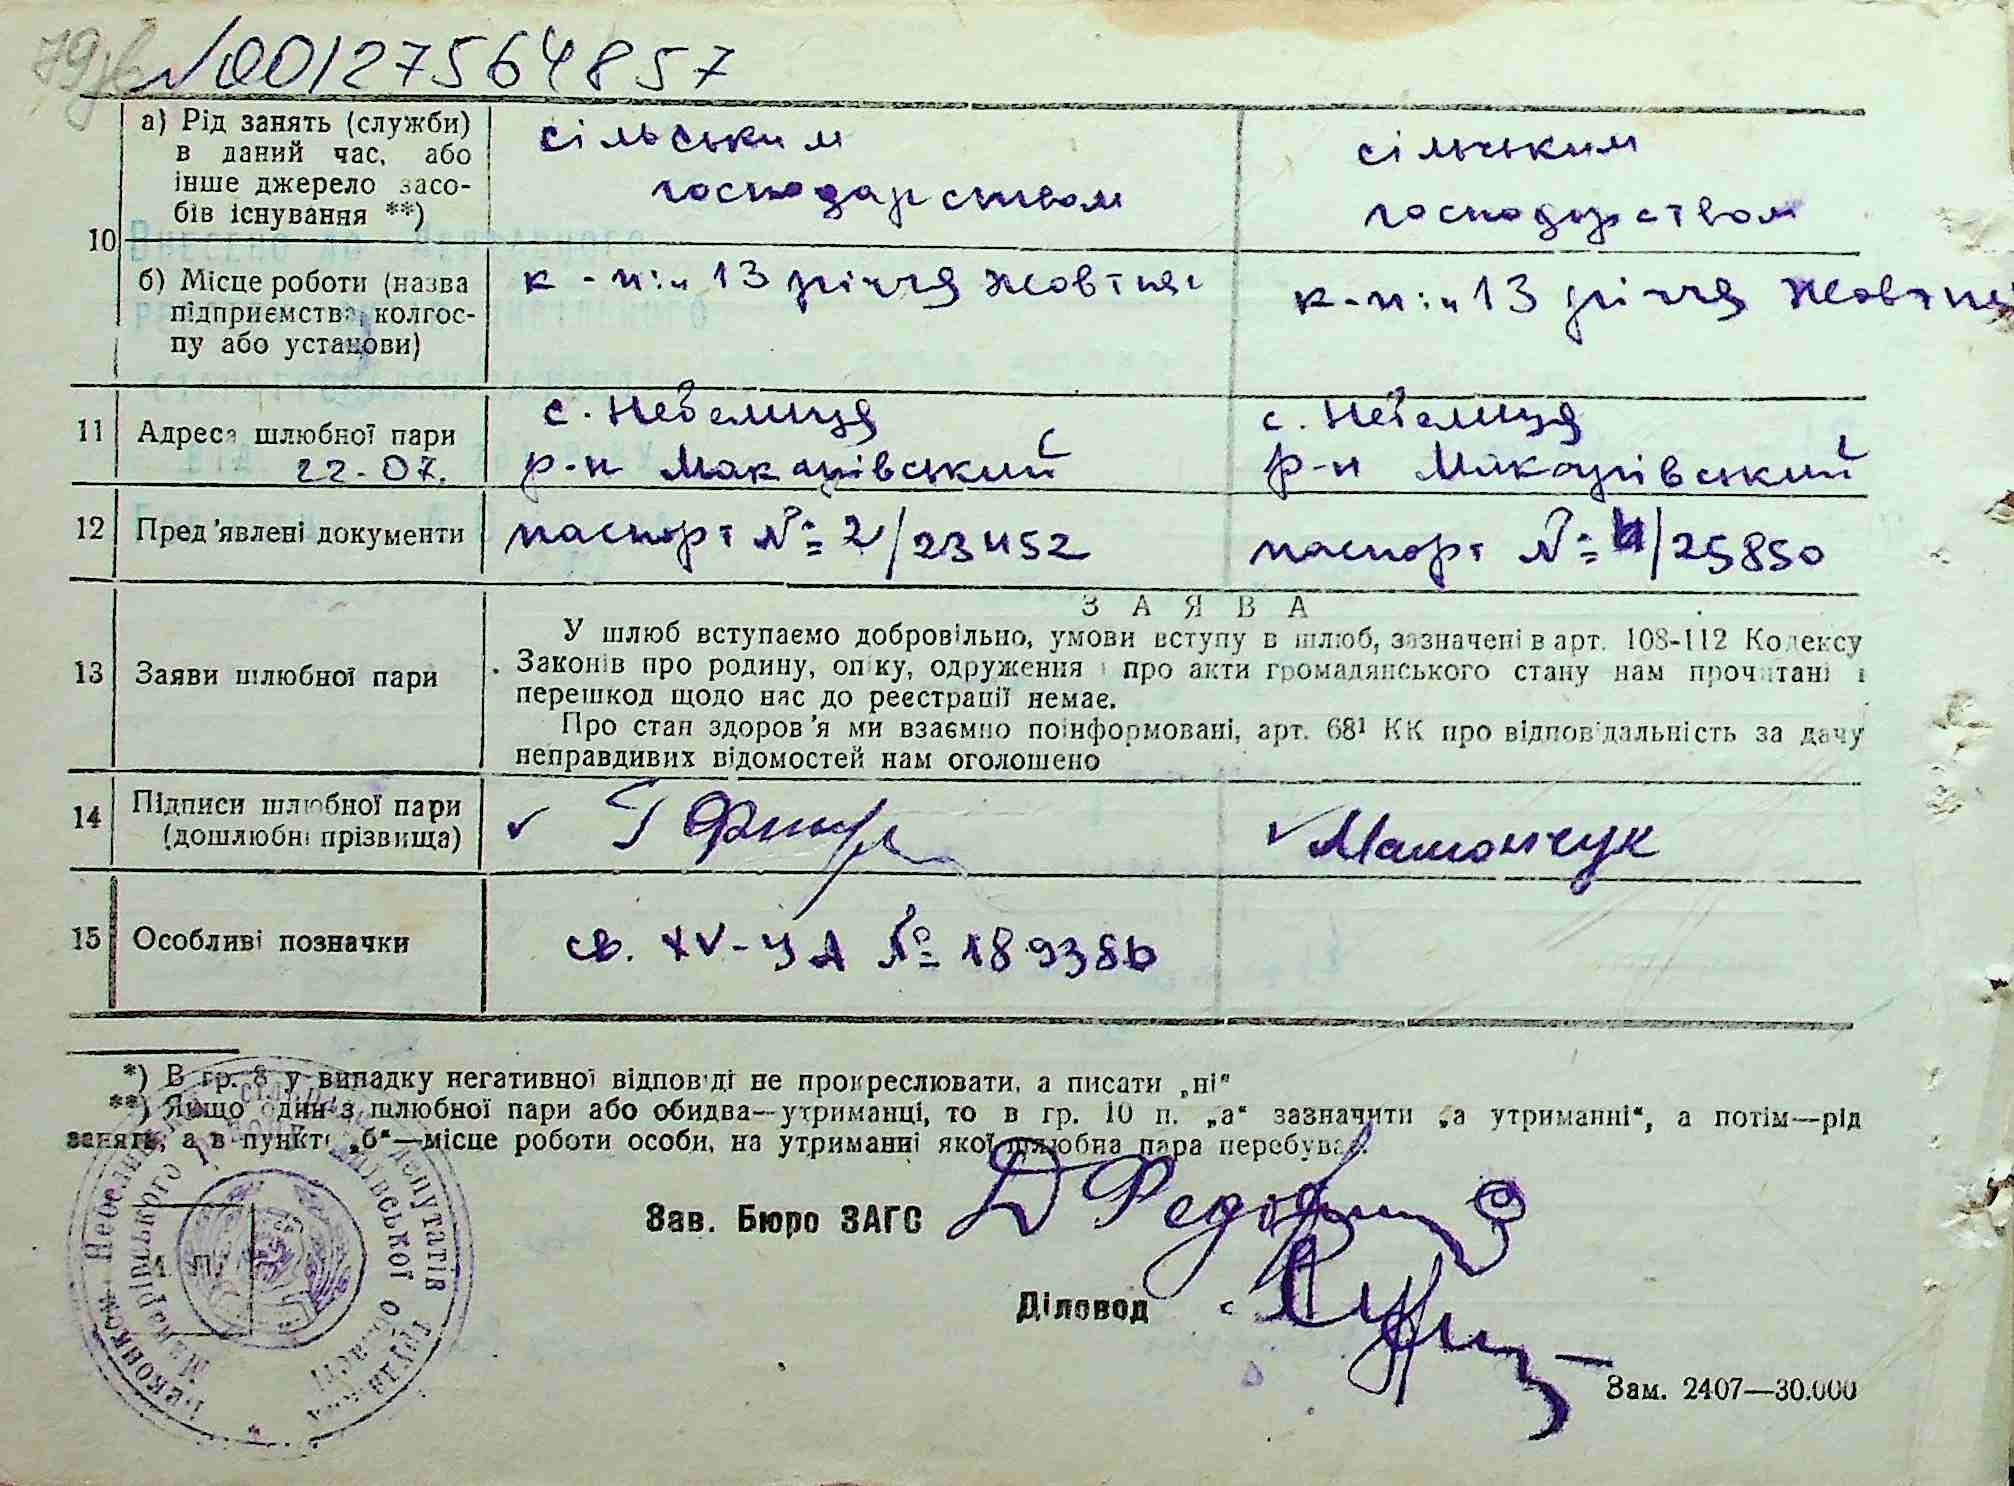 №00127564857
10
а) Рід занять (служби)
в даний час, або
інше джерело засо-
бів існування **)
сільським
господарством
сільським
господарством
б) Місце роботи (назва
підприємства, колгос-
пу або установи)
13 річчя Жовтня
13 річчя Жовтня
11
Адреса шлюбної пари
22-07.
с. Небелиця
р-н Макарівський
с. Небелиця
р-н Макарівський
12
Пред'явлені документи
паспорт № 2/23452
паспорт № /25850
13
Заяви шлюбної пари
ЗАЯВА
У шлюб вступаємо добровільно, умови вступу в шлюб, зазначені в арт. 108-112 Кодексу
Законів про родину, опіку, одруження і про акти громадянського стану нам прочитані і
перешкод щодо нас до реєстрації немає.
Про стан здоров'я ми взаємно поінформовані, арт. 68¹ КК про відповідальність за дачу
неправдивих відомостей нам оголошено
14
Підписи шлюбної пари
(дошлюбні прізвища)
15
Особливі позначки
св. XV-УА № 189386
*) В гр. 8 у випадку негативної відповіді не прокреслювати, а писати „ні“
**) Якщо один з шлюбної пари або обидва—утриманці, то в гр. 10 п. „а“ зазначити „а утриманні“, а потім—рід
занять, а в пункті „б“—місце роботи особи, на утриманні якої шлюбна пара перебуває.
Зав. Бюро ЗАГС
Діловод
М. П.
Зам. 2407—30.000